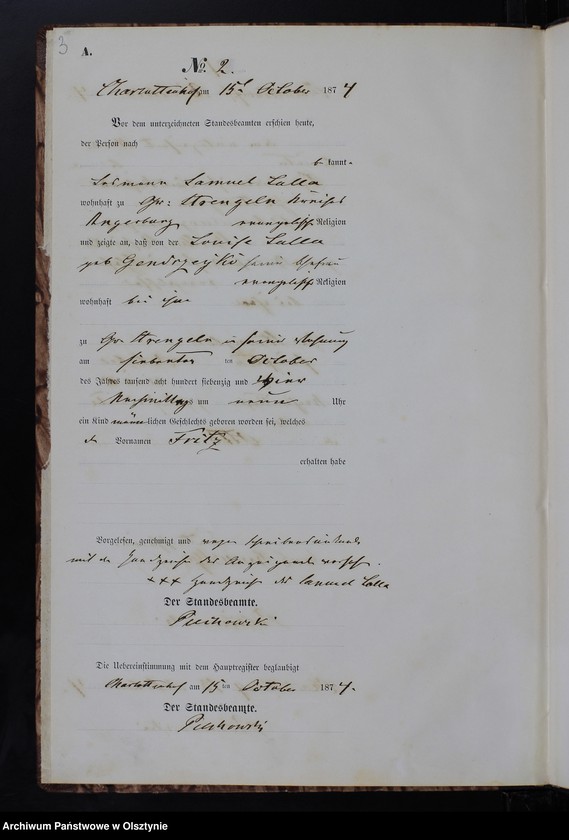 3
A.
No. 2.
Charlottenhof am 15t October 1874
Vor dem unterzeichneten Standesbeamten erschien heute,
der Person nach
bekannt
Losmann Samuel Lalla
wohnhaft zu Gr: Strengeln Kreises
Angerburg evangelischer Religion
und zeigte an, daß von der Louise Lalla
geb Gendrzeyki seiner Ehefrau
evangelischer Religion
wohnhaft bei ihm
zu Gr Strengeln in seiner Wohnung
am siebenten ten October
des Jahres tausend acht hundert siebenzig und vier
Nachmittags um neun Uhr
ein Kind männlichen Geschlechts geboren worden sei, welches
Vornamen Fritz
erhalten habe
Vorgelesen, genehmigt und wegen
mit dem Handzeichen des Anzeigenden versehen.
+++ Handzeichen des Samuel Lalla
Der Standesbeamte.
Die Uebereinstimmung mit dem Hauptregister beglaubigt
Charlottenhof am 15 ten October 1874.
Der Standesbeamte.
Archiwum Państwowe w Olsztynie